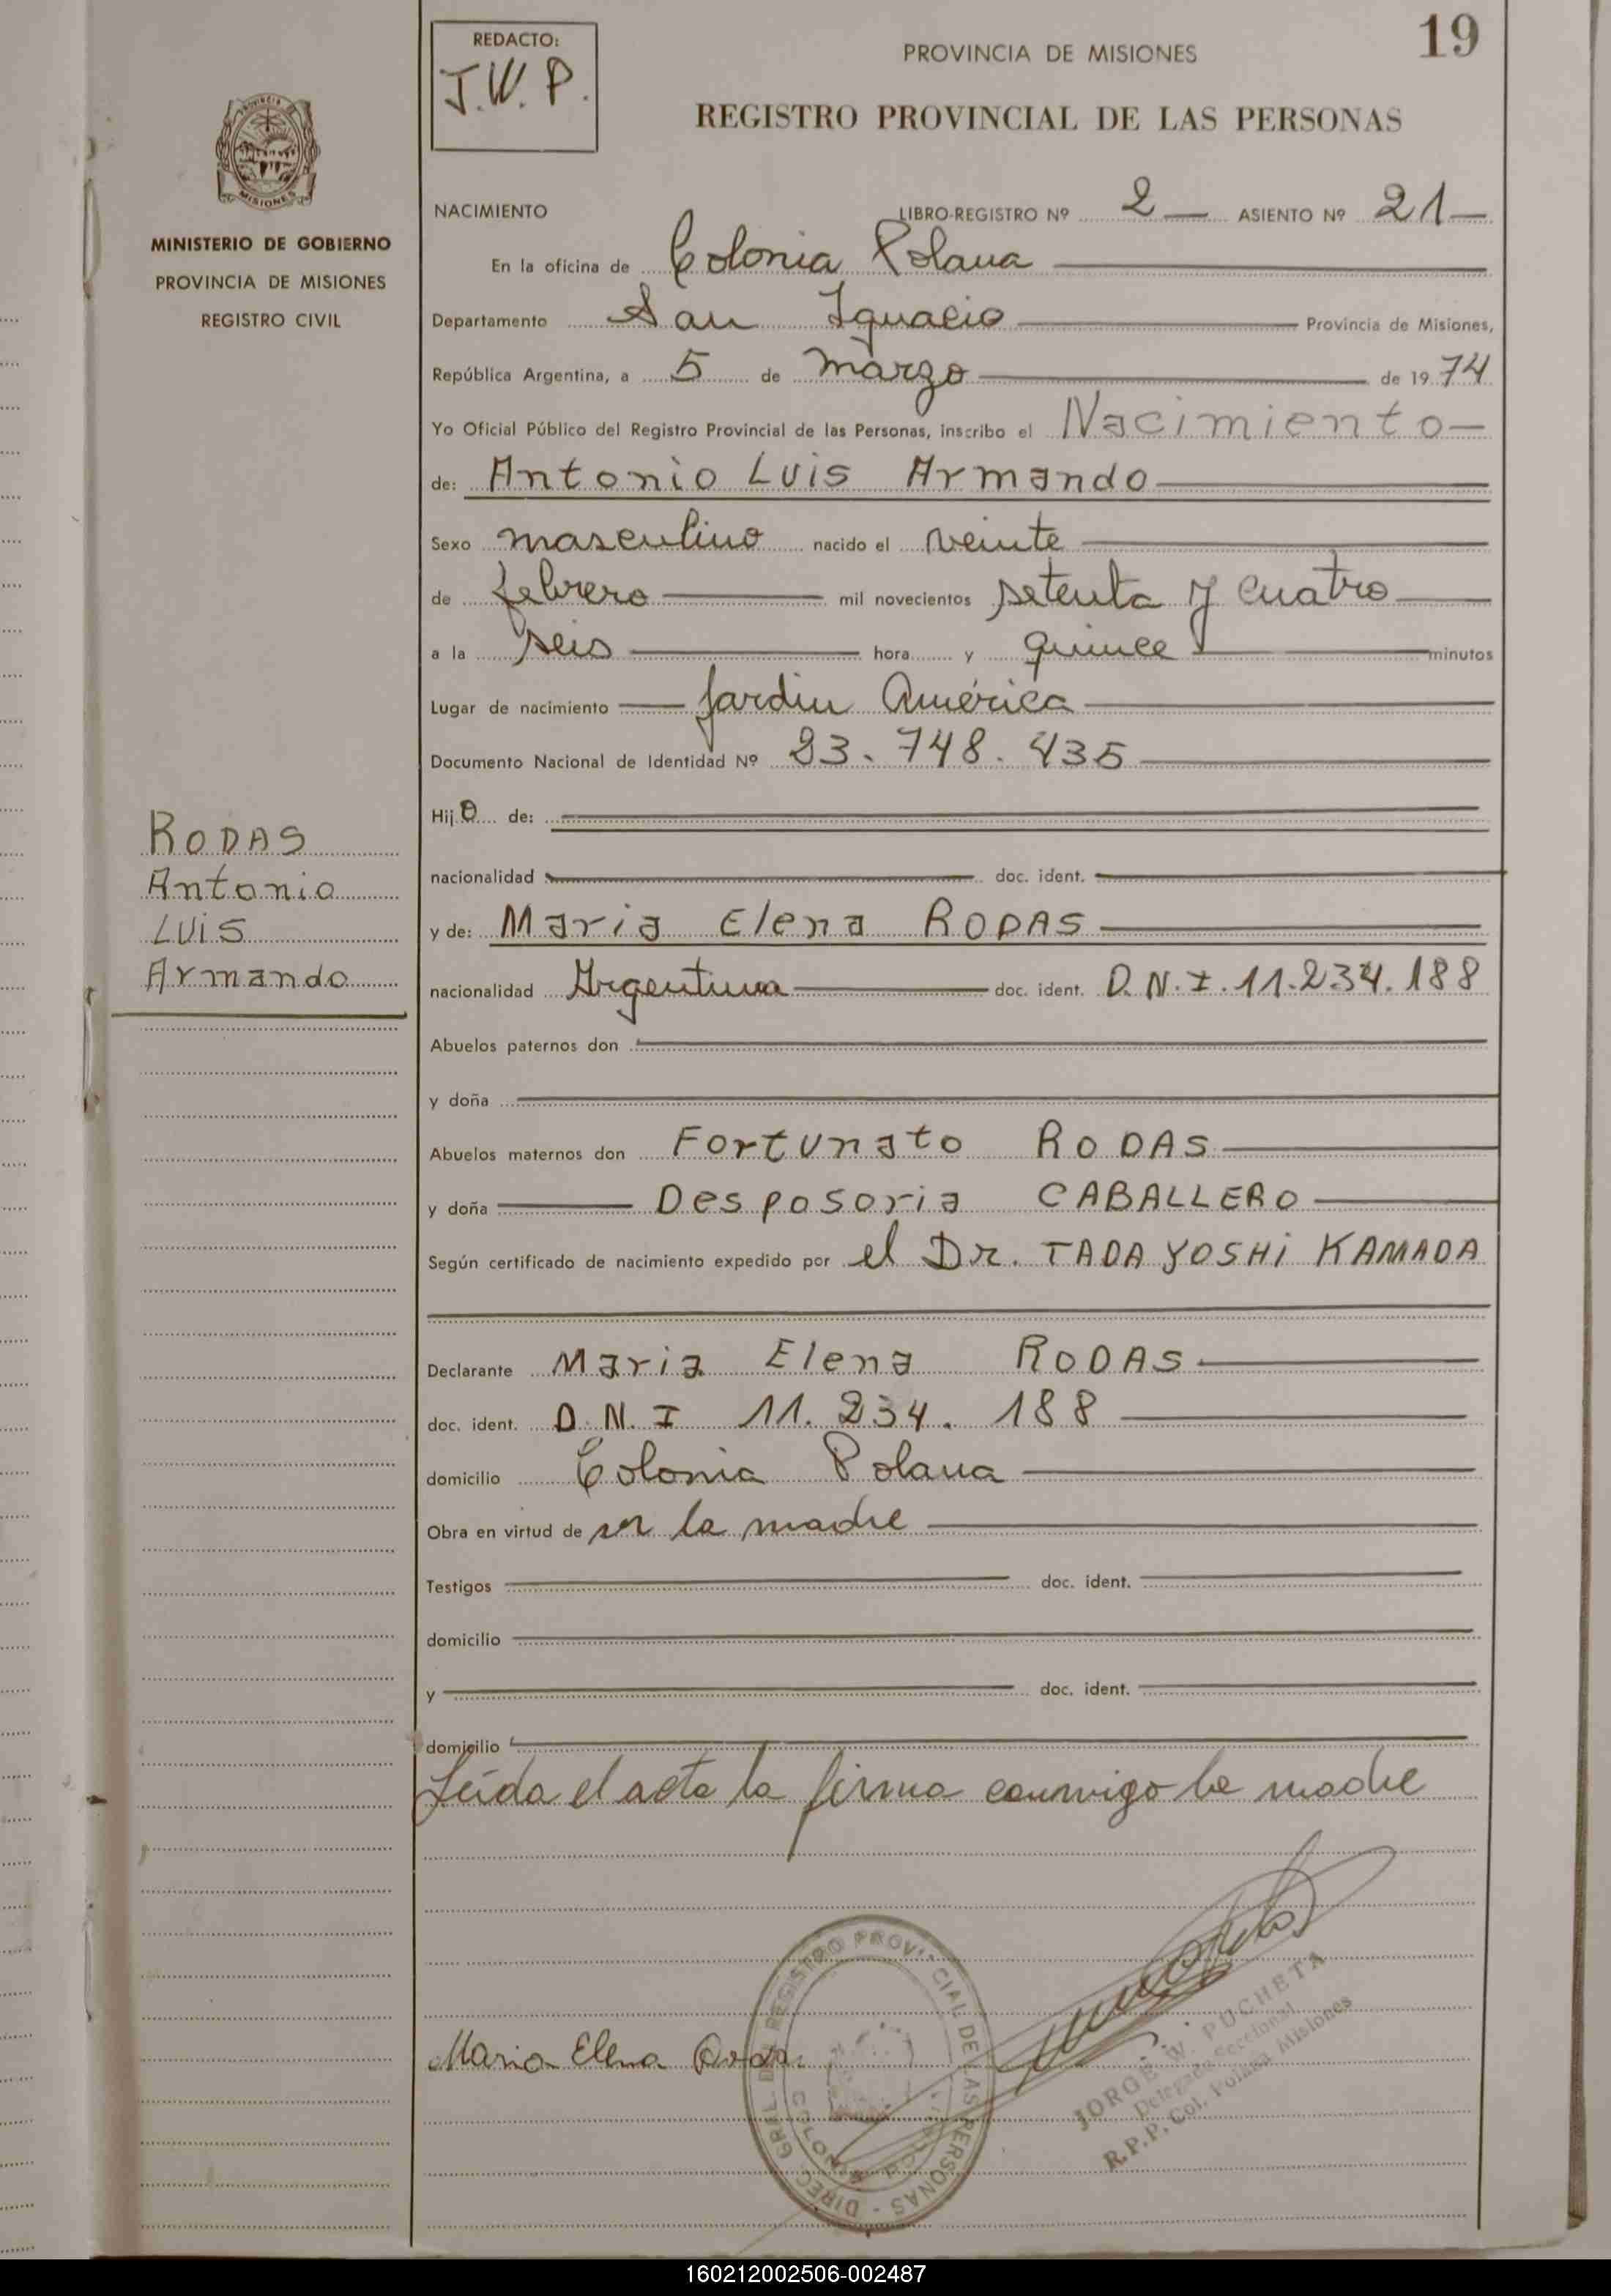 19
REDACTO:
J.W.P.
PROVINCIA DE MISIONES
REGISTRO PROVINCIAL DE LAS PERSONAS
MISIONES
MINISTERIO DE GOBIERNO
PROVINCIA DE MISIONES
REGISTRO CIVIL
RODAS
Antonio
Luis
Armando
NACIMIENTO LIBRO-REGISTRO Nº 2 ASIENTO Nº 21
En la oficina de Colonia Polana
Departamento San Ignacio Provincia de Misiones,
República Argentina, a 5 de marzo de 1974
Yo Oficial Público del Registro Provincial de las Personas, inscribo el Nacimiento
de: Antonio Luis Armando
Sexo masculino nacido el veinte
de febrero mil novecientos setenta y cuatro
a la seis hora y quince minutos
Lugar de nacimiento Jardin América
Documento Nacional de Identidad Nº 23.748.435
Hijo de:
nacionalidad doc. ident.
y de: Maria Elena RODAS
nacionalidad Argentina doc. ident. D.N.I. 11.234.188
Abuelos paternos don
y doña
Abuelos maternos don Fortunato RODAS
y doña Desposoria CABALLERO
Según certificado de nacimiento expedido por el Dr. TADA YOSHI KAMADA
Declarante Maria Elena RODAS
doc. ident. D.N.I 11.234.188
domicilio Colonia Polana
Obra en virtud de ser la madre
Testigos doc. ident.
domicilio
y doc. ident.
domicilio
Leída el acta la firma conmigo la madre
Maria Elena Rodas
DIREC. GRAL. DEL REGISTRO PROVINCIAL DE LAS PERSONAS
COLONIA POLANA
JORGE W. PUCHETA
Delegado Seccional
R.P.P. Col. Polana Misiones
160212002506-002487